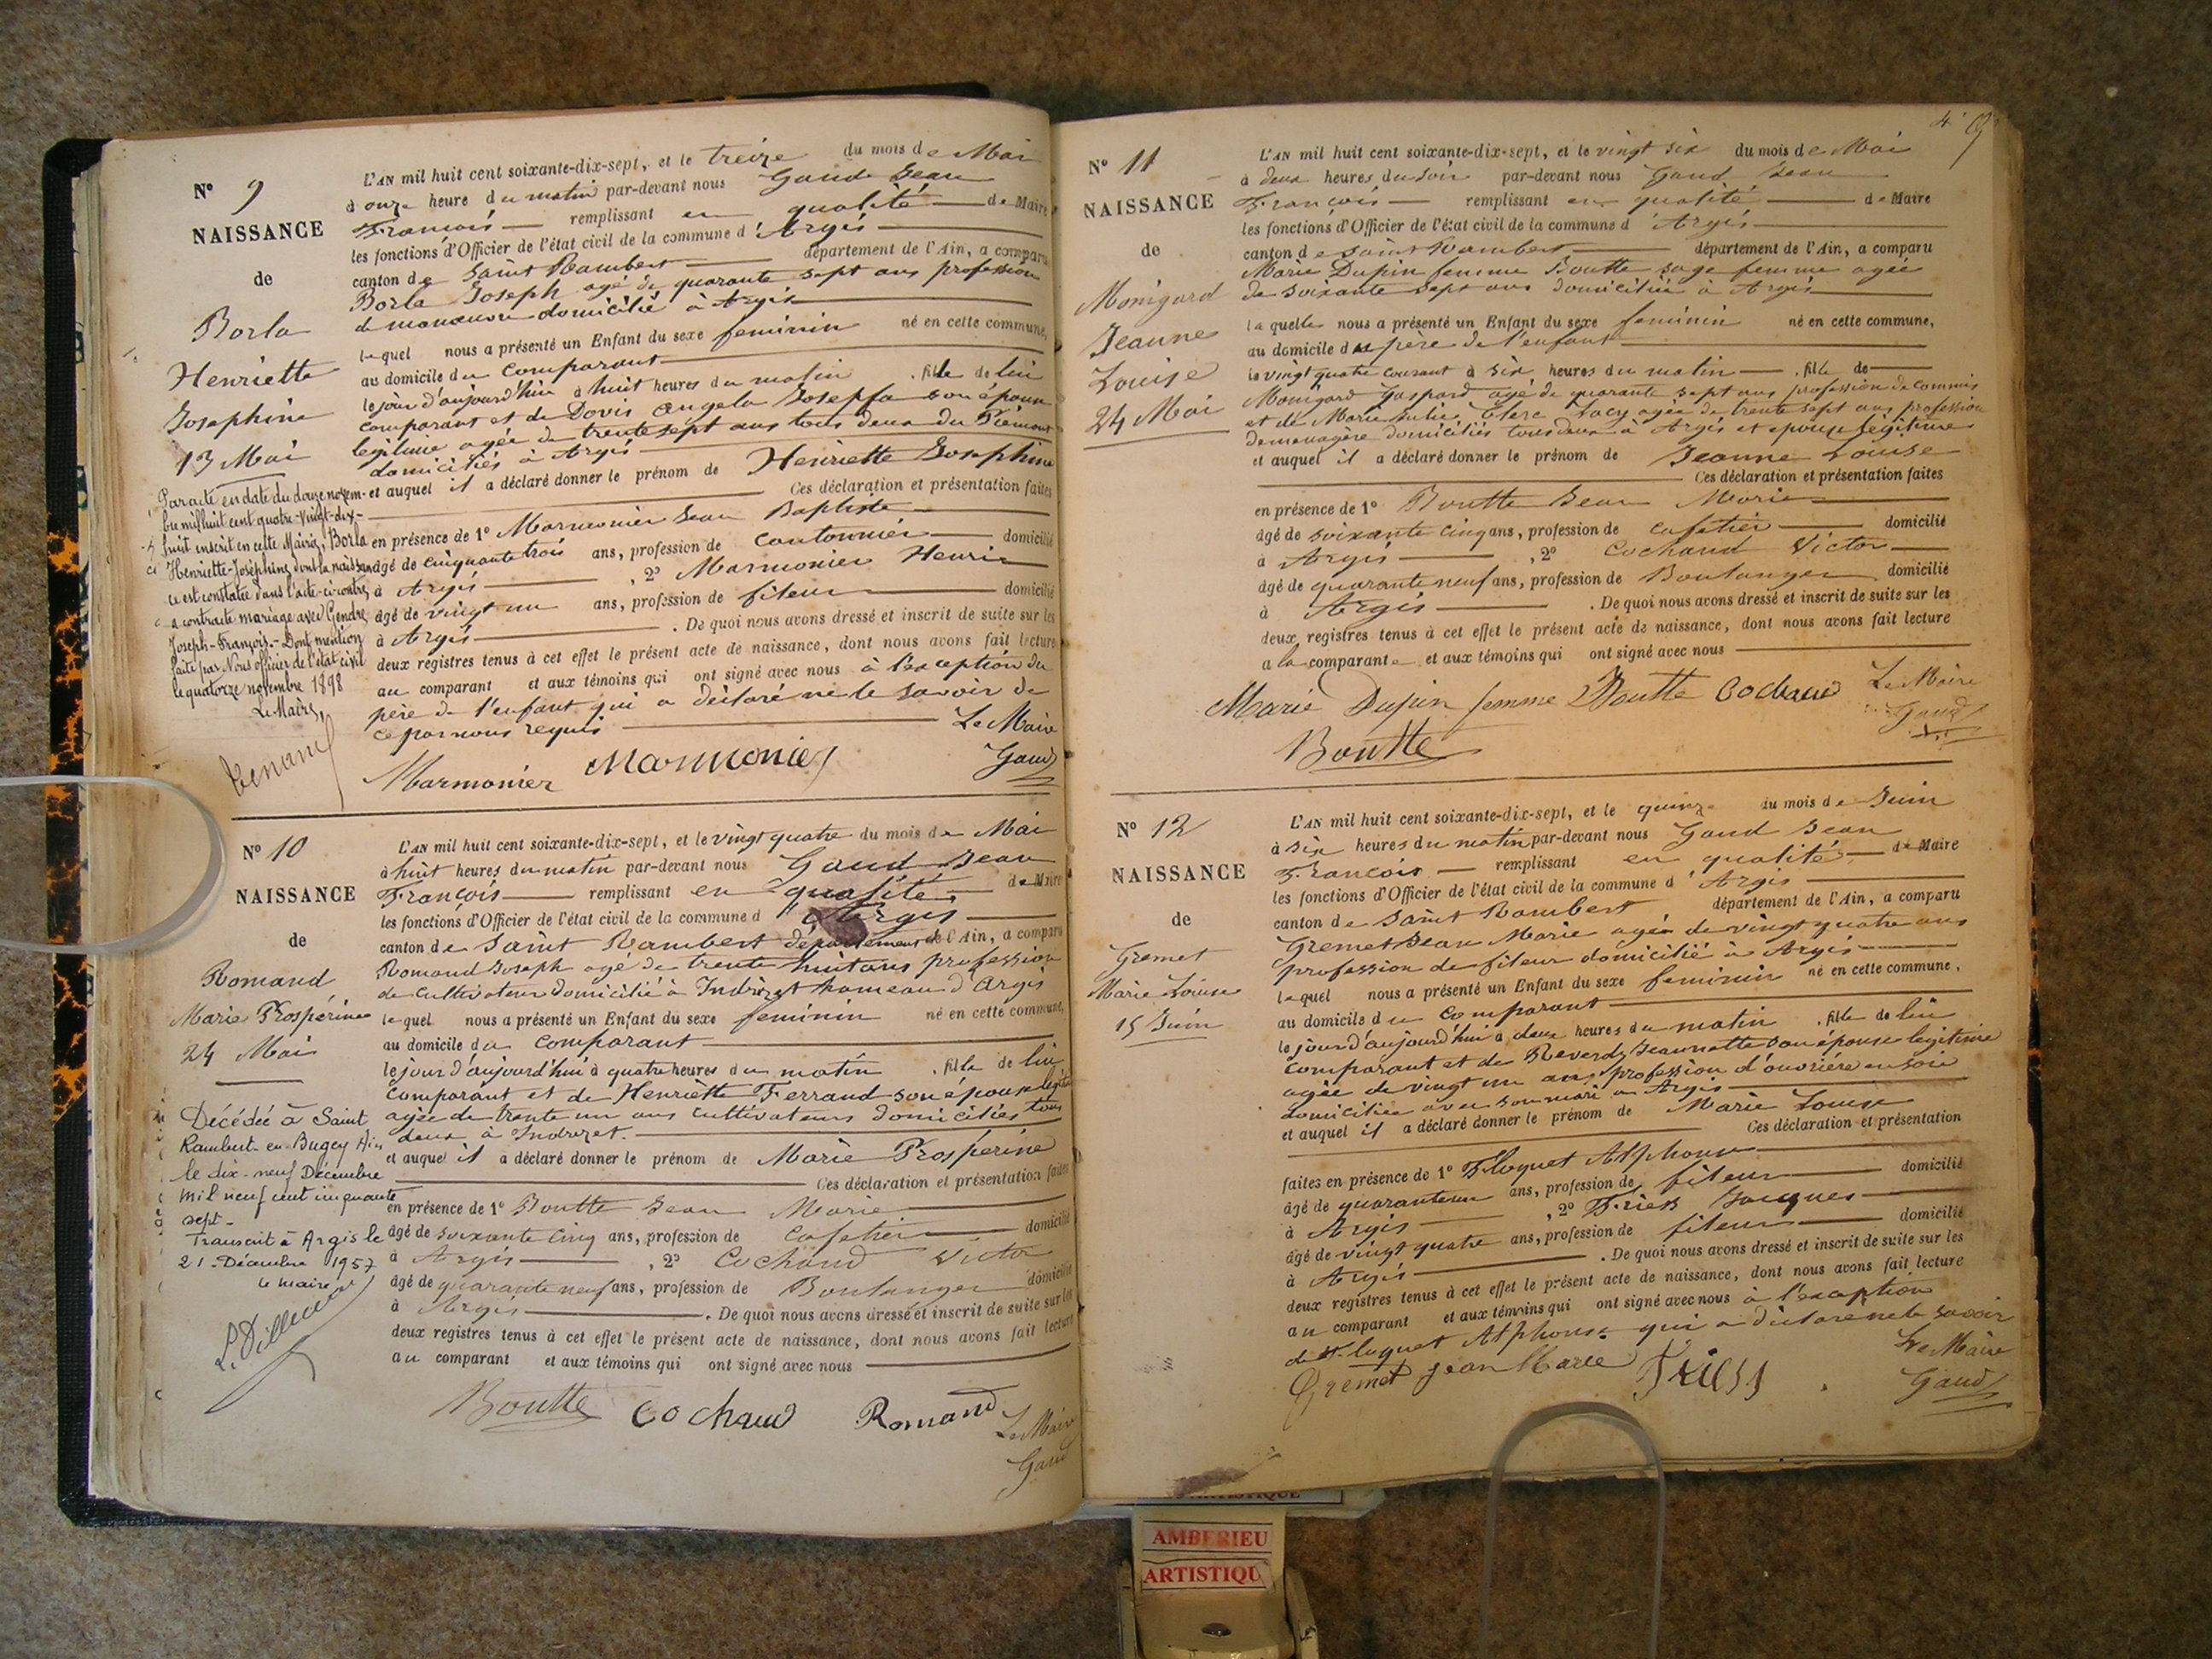 N° 9
NAISSANCE
de
Borla
Henriette
Josephine
13 Mai
Par acte en date du douze novem-
bre mil huit cent quatre-vingt-dix-
huit inscrit en cette Mairie, Borla
Henriette-Joséphine dont la naissan-
ce est constatée dans l'acte ci-contre,
a contracté mariage avec Gendre
Joseph-François.- Dont mention
faite par Nous officier de l'état civil
le quatorze novembre 1898
Le Maire,
L'AN mil huit cent soixante-dix-sept, et le treize du mois de Mai
à onze heure du matin par-devant nous Gaud Jean
François remplissant en qualité de Maire
les fonctions d'Officier de l'état civil de la commune d'Argis
canton de Saint Rambert département de l'Ain, a comparu
Borla Joseph agé de quarante sept ans profession
de manœuvre domicilié à Argis
lequel nous a présenté un Enfant du sexe feminin né en cette commune,
au domicile du comparant
le jour d'aujourd'hui à huit heures du matin . fille de lui
comparant et de Dovis Angela Josepfa son épouse
légitime agée de trente sept ans tous deux du Piémont
domiciliés à Argis
et auquel il a déclaré donner le prénom de Henriette Josephine
Ces déclaration et présentation faites
en présence de 1° Marmonier Jean Baptiste
âgé de cinquante trois ans, profession de cantonnier domicilié
à Argis , 2° Marmonier Henri
âgé de vingt un ans, profession de fileur domicilié
à Argis . De quoi nous avons dressé et inscrit de suite sur les
deux registres tenus à cet effet le présent acte de naissance, dont nous avons fait lecture
au comparant et aux témoins qui ont signé avec nous à l'exception du
père de l'enfant qui a déclaré ne le savoir de
ce par nous requis Le Maire
Marmonier Marmonier Gaud
N° 10
NAISSANCE
de
Romand
Marie Prospérine
24 Mai
Décédée à Saint
Rambert-en-Bugey Ain
le dix-neuf Décembre
mil neuf cent cinquante
sept -
Transcrit à Argis le
21 Décembre 1957
le maire
L'AN mil huit cent soixante-dix-sept, et le vingt quatre du mois de Mai
à huit heures du matin par-devant nous Gaud Jean
François remplissant en qualité de Maire
les fonctions d'Officier de l'état civil de la commune d'Argis
canton de Saint Rambert département de l'Ain, a comparu
Romand Joseph agé de trente huit ans profession
de cultivateur domicilié à Indrizet hameau d'Argis
lequel nous a présenté un Enfant du sexe feminin né en cette commune,
au domicile du comparant
le jour d'aujourd'hui à quatre heures du matin . fille de lui
comparant et de Henriette Ferrand son épouse légitime
agée de trente un ans cultivateurs domiciliés tous
deux à Indrizet.
et auquel il a déclaré donner le prénom de Marie Prospérine
Ces déclaration et présentation faites
en présence de 1° Boutte Jean Marie
âgé de soixante cinq ans, profession de cafetier domicilié
à Argis , 2° Cochaud Victor
âgé de quarante neuf ans, profession de Boulanger domicilié
à Argis . De quoi nous avons dressé et inscrit de suite sur les
deux registres tenus à cet effet le présent acte de naissance, dont nous avons fait lecture
au comparant et aux témoins qui ont signé avec nous
Boutte Cochaud Romand Le Maire
Gaud
4
N° 11
NAISSANCE
de
Monigard
Jeanne
Louise
24 Mai
L'AN mil huit cent soixante-dix-sept, et le vingt six du mois de Mai
à deux heures du soir par-devant nous Gaud Jean
François remplissant en qualité de Maire
les fonctions d'Officier de l'état civil de la commune d'Argis
canton de Saint Rambert département de l'Ain, a comparu
Marie Dupin femme Boutte sage femme agée
de soixante sept ans domiciliée à Argis
laquelle nous a présenté un Enfant du sexe feminin né en cette commune,
au domicile du père de l'enfant
le vingt quatre courant à six heures du matin . fille de
Monigard Gaspard agé de quarante sept ans profession de commis
et de Marie Julie Clerc agée de trente sept ans profession
de menagère domiciliés tous deux à Argis et epoux légitime
et auquel il a déclaré donner le prénom de Jeanne Louise
Ces déclaration et présentation faites
en présence de 1° Boutte Jean Marie
âgé de soixante cinq ans, profession de cafetier domicilié
à Argis , 2° Cochaud Victor
âgé de quarante neuf ans, profession de Boulanger domicilié
à Argis . De quoi nous avons dressé et inscrit de suite sur les
deux registres tenus à cet effet le présent acte de naissance, dont nous avons fait lecture
a la comparante et aux témoins qui ont signé avec nous
Marie Dupin femme Boutte Cochaud Le Maire
Boutte Gaud
N° 12
NAISSANCE
de
Gremet
Marie Louise
15 Juin
L'AN mil huit cent soixante-dix-sept, et le quinze du mois de Juin
à six heures du matin par-devant nous Gaud Jean
François remplissant en qualité de Maire
les fonctions d'Officier de l'état civil de la commune d'Argis
canton de Saint Rambert département de l'Ain, a comparu
Gremet Jean Marie agée de vingt quatre ans
profession de fileur domicilié à Argis
lequel nous a présenté un Enfant du sexe feminin né en cette commune,
au domicile du comparant
le jour d'aujourd'hui à deux heures du matin . fille de lui
comparant et de Reverdy Jeannette son épouse legitime
agée de vingt un ans profession d'ouvrière en soie
domiciliée avec son mari à Argis
et auquel il a déclaré donner le prénom de Marie Louise
Ces déclaration et présentation
faites en présence de 1° Floquet Alphonse
âgé de quarante un ans, profession de fileur domicilié
à Argis , 2° Friess Jacques
âgé de vingt quatre ans, profession de fileur domicilié
à Argis . De quoi nous avons dressé et inscrit de suite sur les
deux registres tenus à cet effet le présent acte de naissance, dont nous avons fait lecture
au comparant et aux témoins qui ont signé avec nous à l'exception
de Floquet Alphonse qui a déclaré ne le savoir
Gremet jean Marie Friess Le Maire
Gaud
AMBERIEU
ARTISTIQU